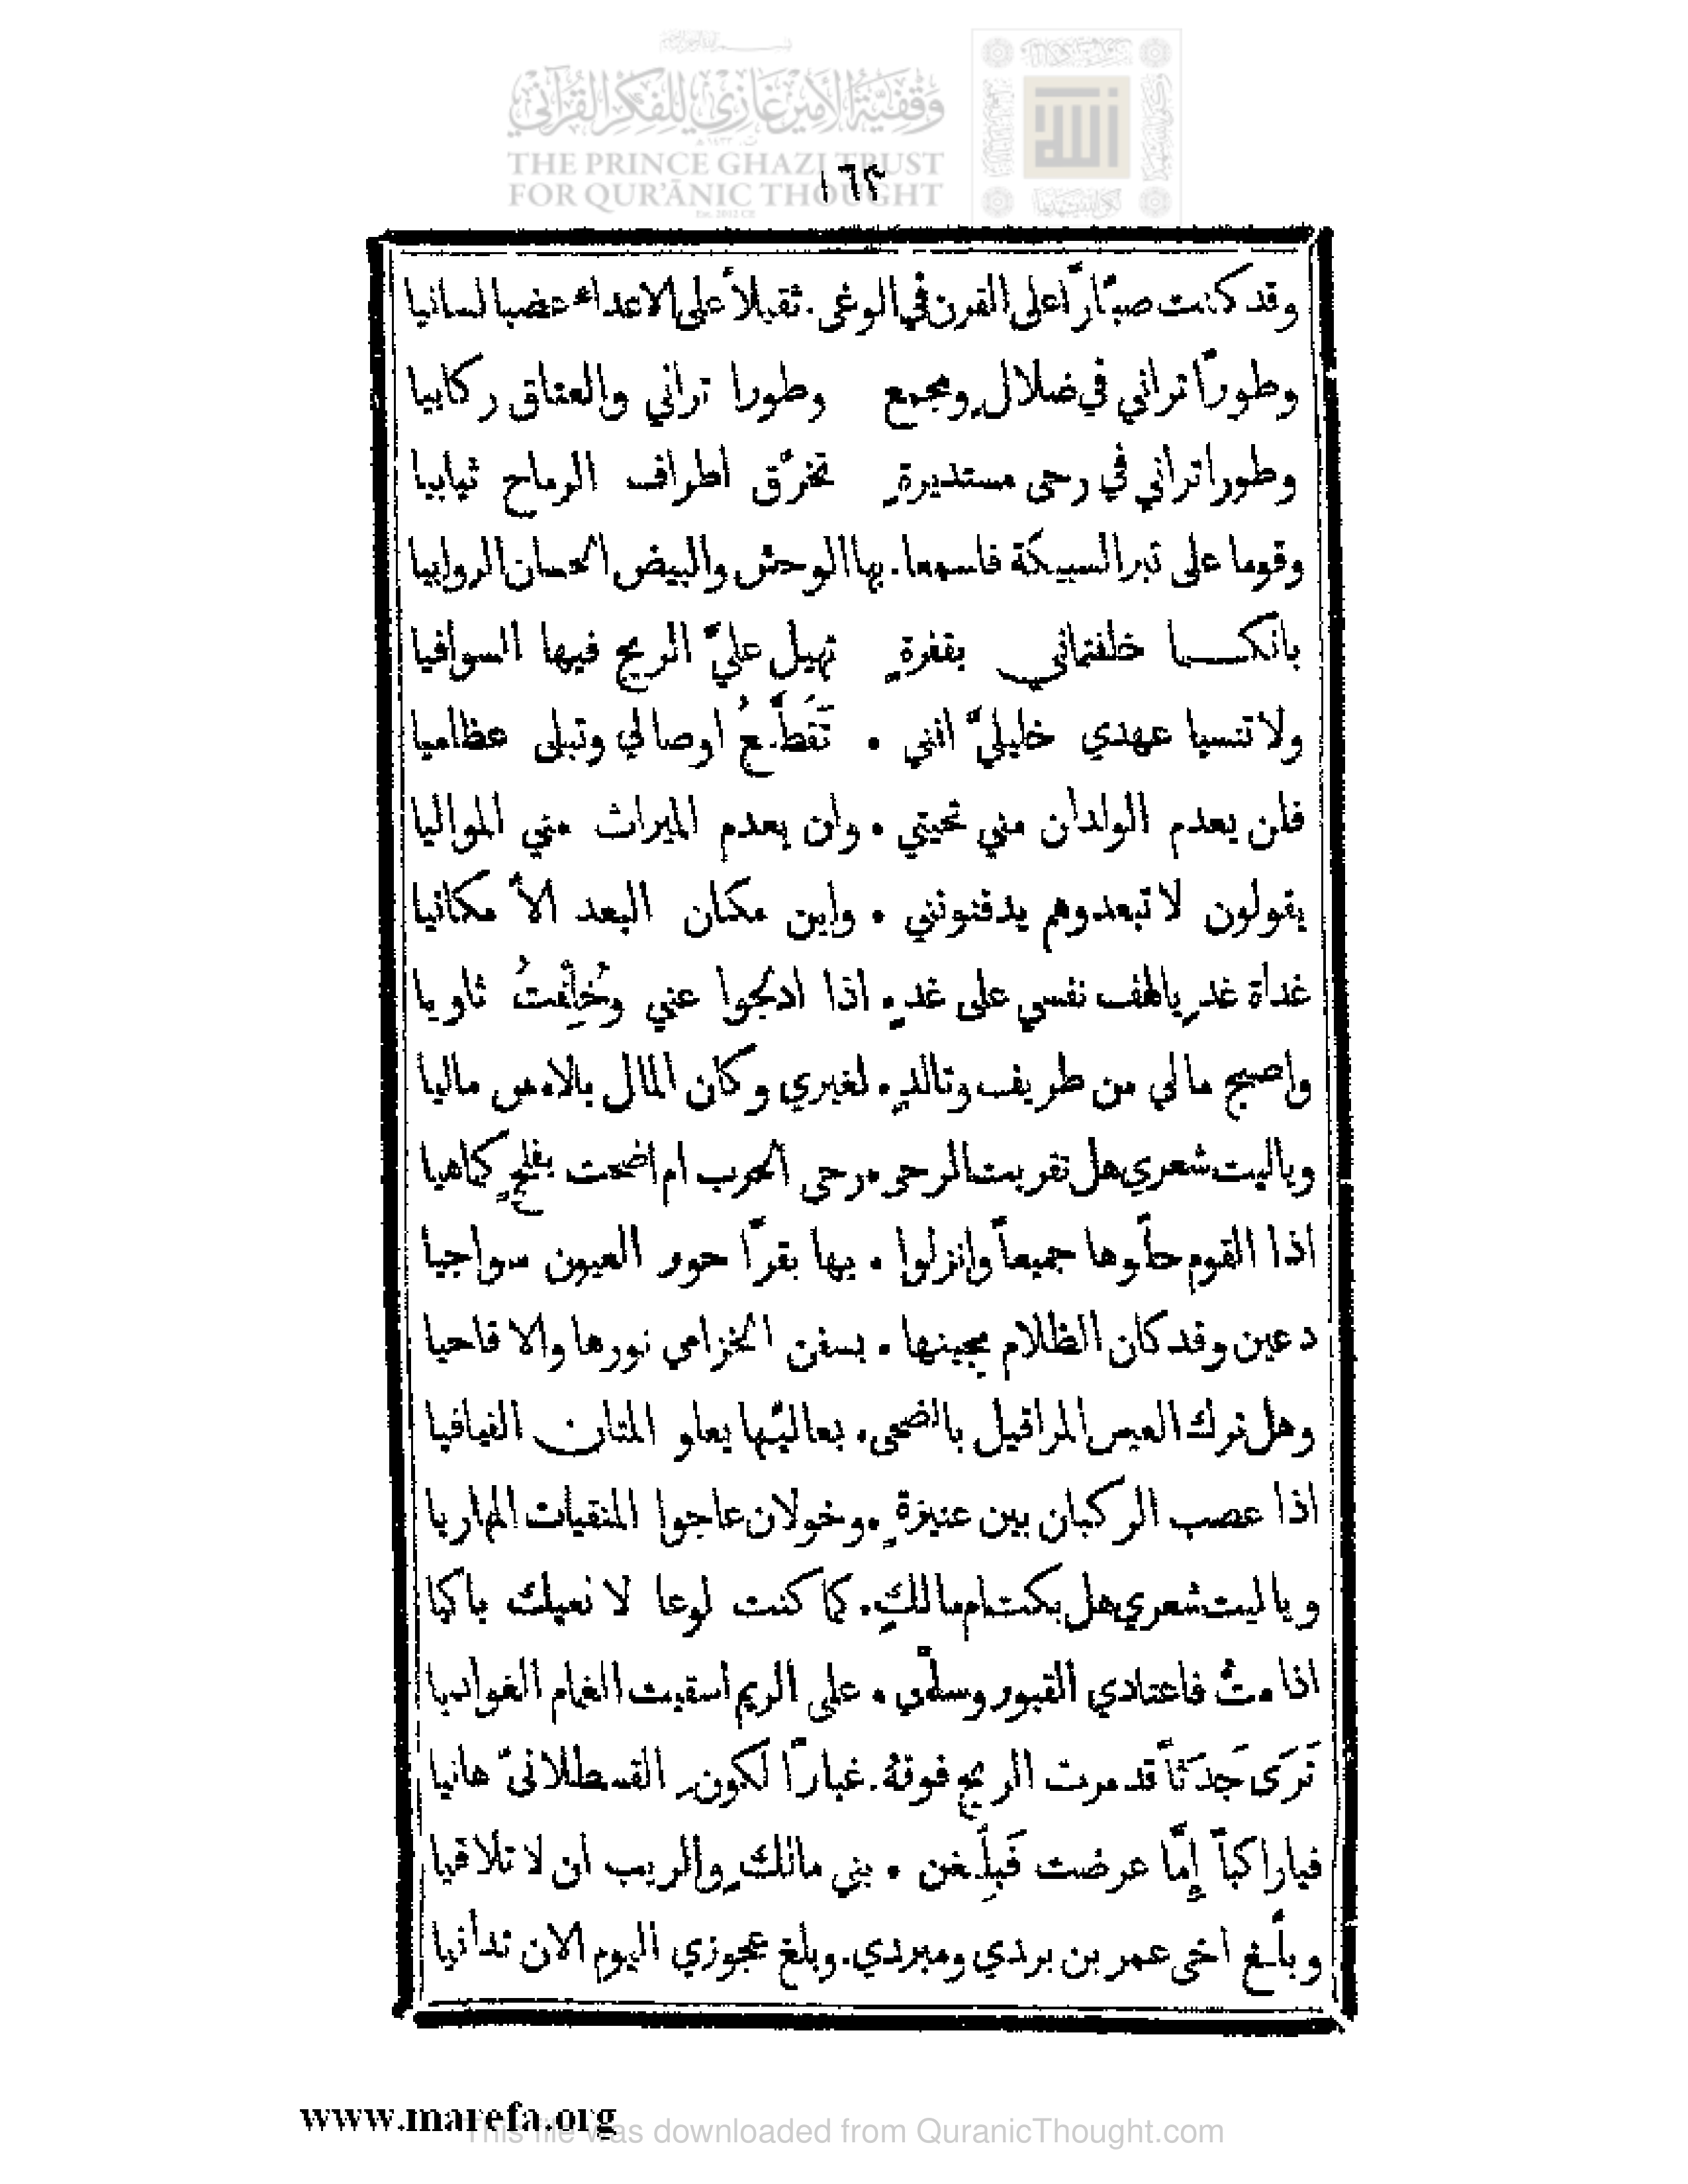 وقفية الأمير غازي للفكر القرآني
THE PRINCE GHAZI TRUST
FOR QUR'ĀNIC THOUGHT
Est. 2012 CE
١٦٤
وقد كنت صبّارًا على القرن في الوغى . ثقيلاً على الاعداء عضبا لسانيا
وطورًا تراني في ضلالٍ ومجمع وطورا تراني والعتاق ركابيا
وطورا تراني في رحى مستديرةٍ تخرّق اطراف الرماح ثيابيا
وقوما على تبر السبيكة فاسمعا . بها الوحش والبيض الحسان الروابيا
بانكما خلفتماني بقفرةٍ تهيل عليّ الريح فيها السوافيا
ولا تنسيا عهدي خليليّ انني . تَقَطّعُ اوصالي وتبلى عظاميا
فلن يعدم الولدان مني تحيتي . وان يعدم الميراث مني المواليا
يقولون لا تبعد وهم يدفنونني . واين مكان البعد الأ مكانيا
غداة غدٍ يالهف نفسي على غدٍ . اذا ادلجوا عني وخُلِّفتُ ثاويا
واصبح مالي من طريف وتالدٍ . لغيري وكان المال بالامس ماليا
وياليت شعري هل تغربت الرحى . رحى الحرب ام اضحت بفلجٍ كماهيا
اذا القوم حلّوها جميعاً وانزلوا . بها بقرًا حور العيون سواجيا
دعين وقد كان الظلام يجينها . يسفن الخزامى نورها والاقاحيا
وهل ترك العيس المراقيل بالضحى . بعاليّها يعلو المتان الفيافيا
اذا عصب الركبان بين عنيزةٍ . وخولان عاجوا المنقيات المهاريا
وياليت شعري هل بكت ام مالكٍ . كما كنت لوعا لا نعيلك باكيا
اذا متّ فاعتادي القبور وسلّمي . على الريم اسقيت الغمام الغواديا
تَرَى جَدَثاً قد مرت الريح فوقهُ . غبارًا لكونِ القسطلانيّ هانيا
فيا راكباً إِمّا عرضت فَبلِّغن . بني مالكٍ والريب ان لا تلاقيا
وبلّغ اخي عمر بن بردي ومبردي . وبلغ عجوزي اليوم الان تدانيا
www.marefa.org
This file was downloaded from QuranicThought.com